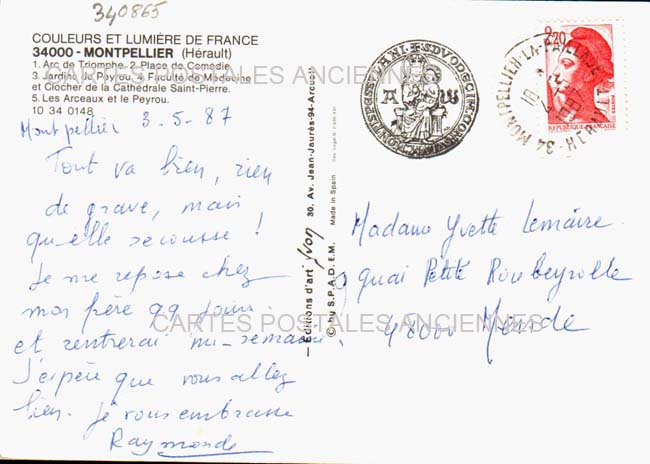 340865
COULEURS ET LUMIÈRE DE FRANCE
34000 - MONTPELLIER (Hérault)
1. Arc de Triomphe. 2. Place de Comédie.
3. Jardins de Peyrou. 4. Faculté de Médecine
et Clocher de la Cathédrale Saint-Pierre.
5. Les Arceaux et le Peyrou.
10 34 0148
Montpellier 3-5-87
Tout va bien, rien
de grave, mais
quelle secousse !
Je me repose chez
mon père qq jours
et rentrerai mi-semaine.
J'espère que vous allez
bien. Je vous embrasse
Raymonde
Editions d'art yvon 30, Av. Jean-Jaurès-94-Arcueil
© by S.P.A.D.E.M. Made in Spain
2,20
REPUBLIQUE FRANÇAISE
34 MONTPELLIER-LA-PAILLADE
HERAULT
Madame Yvette Lemaire
9 quai Petite Roubeyrolle
48000 Mende
CARTES POSTALES ANCIENNES
CARTES POSTALES ANCIENNES